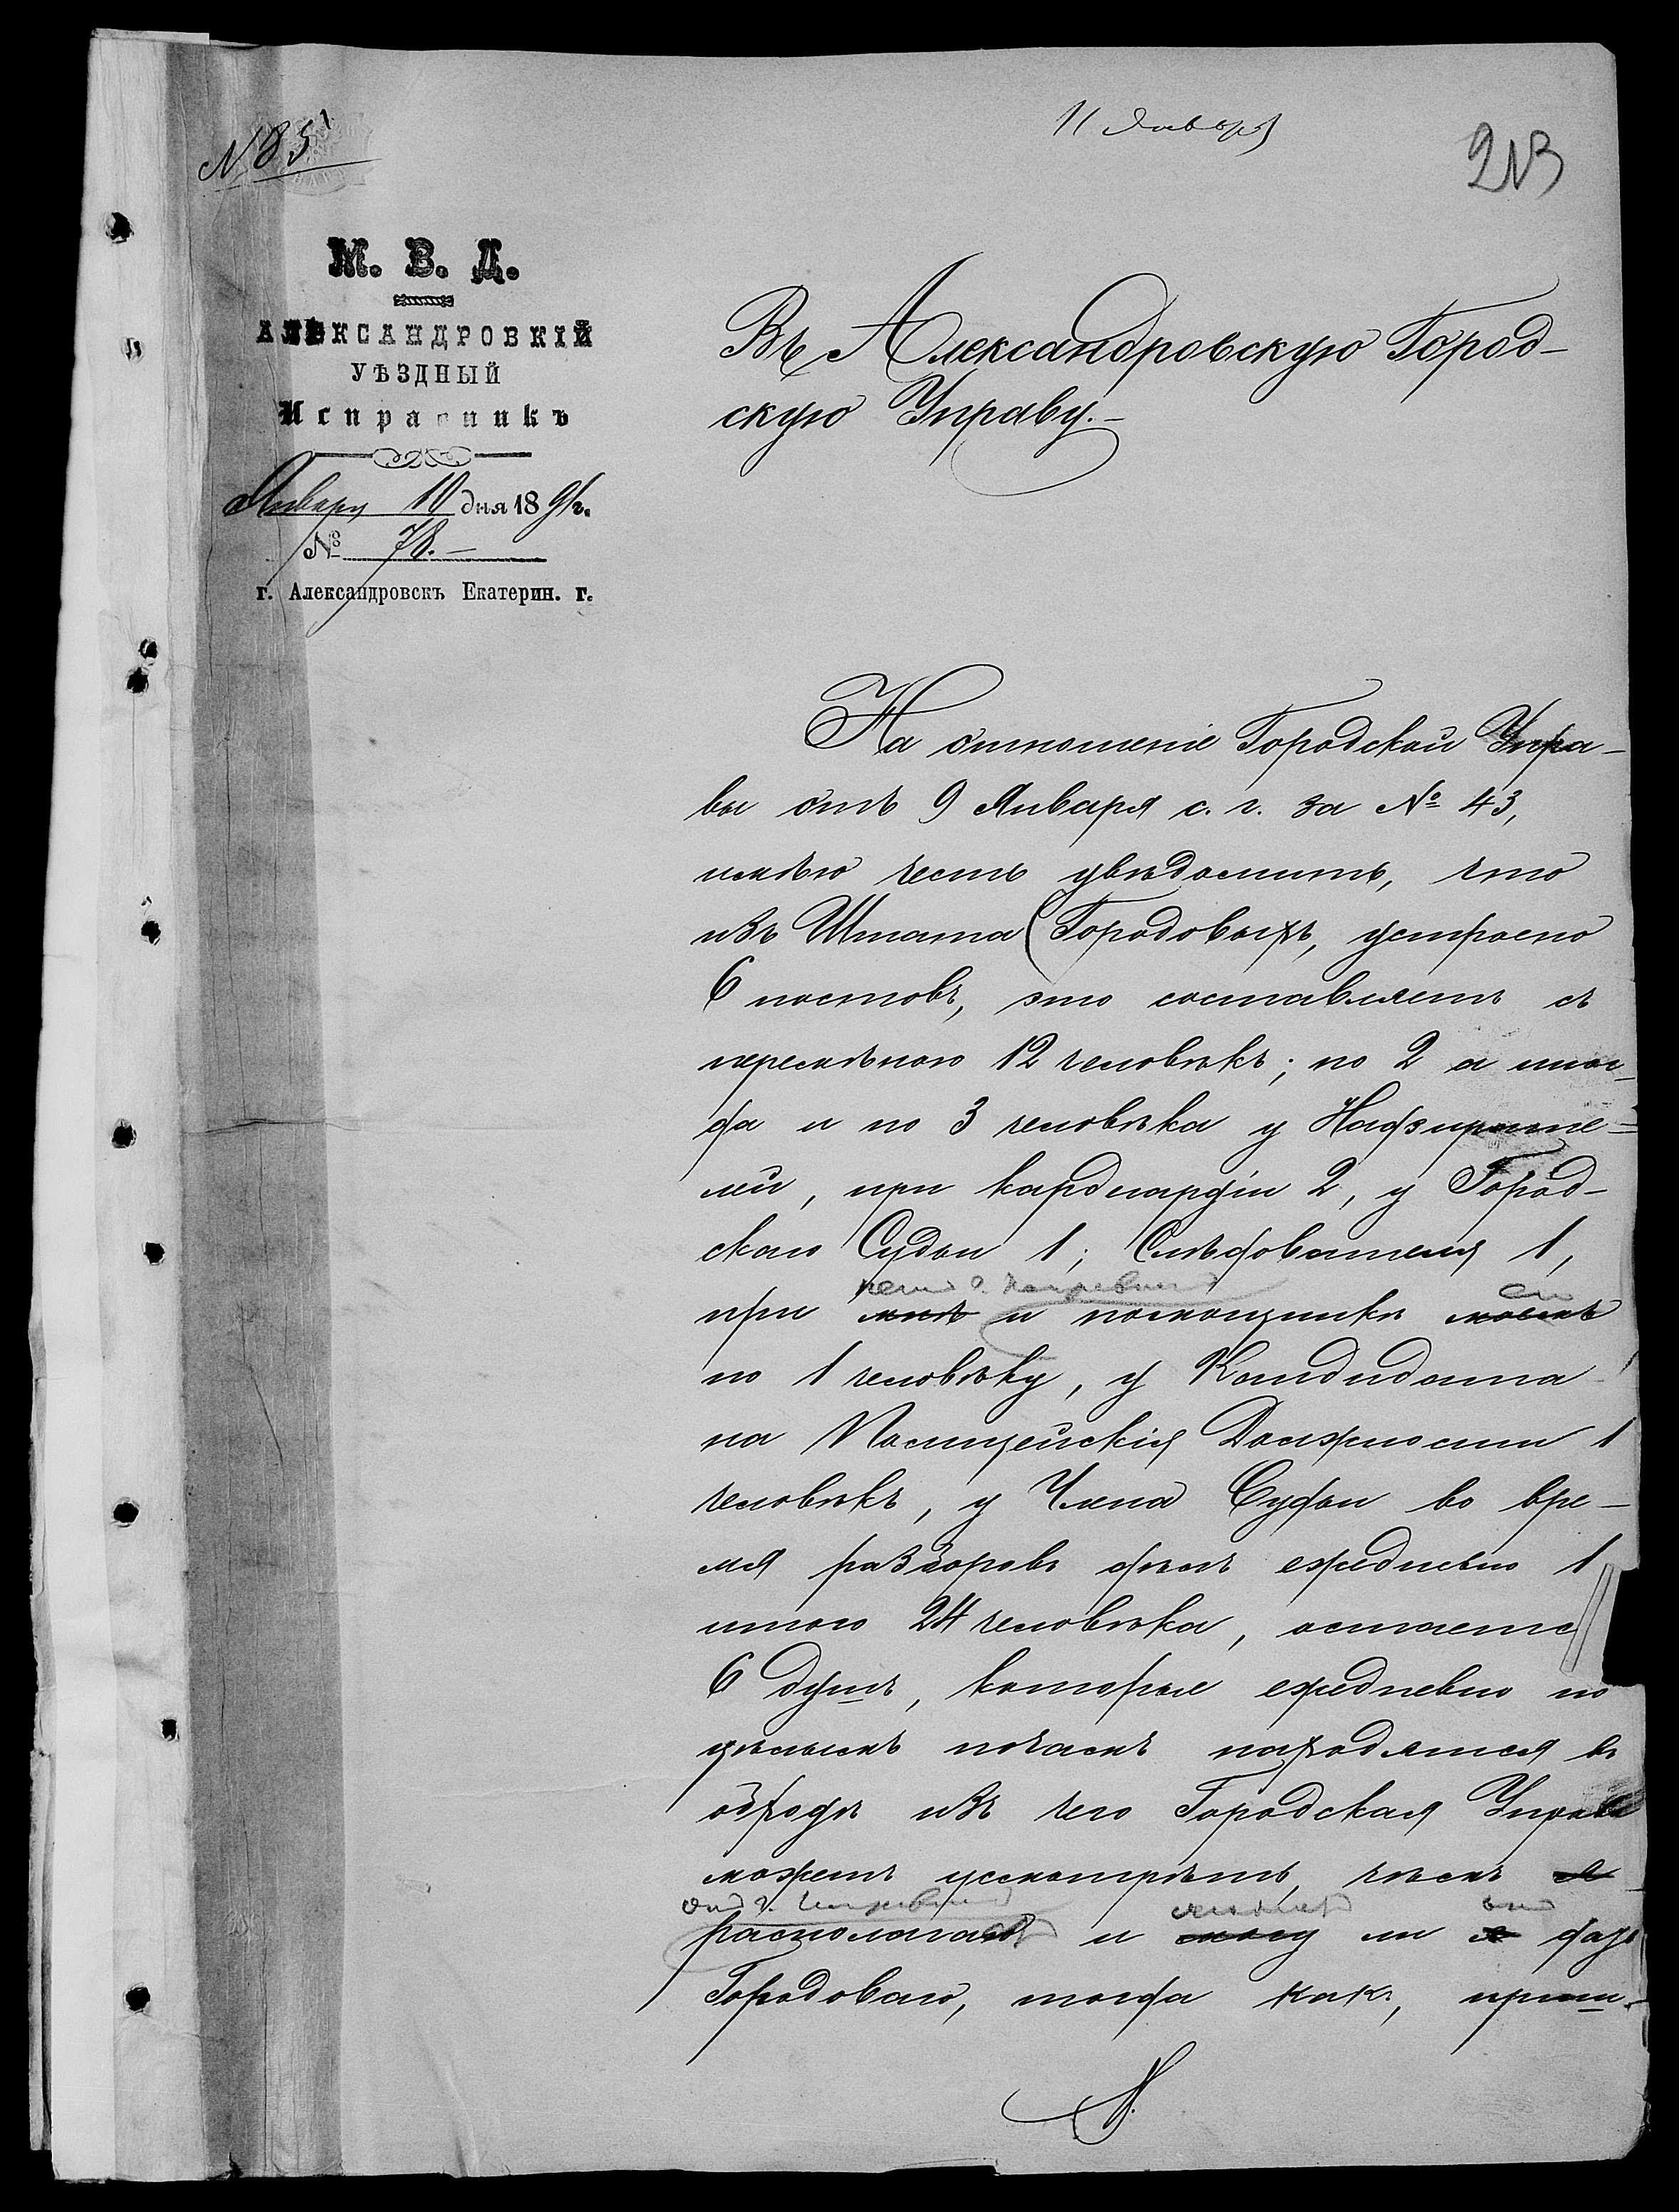 11 Января
№ 85
М. В. Д.
АЛЕКСАНДРОВКІЙ
УѢЗДНЫЙ
Исправникъ
Января 10 дня 1891 г.
№ 78.-
г. Александровскъ Екатерин. г.
Въ Александровскую Город-
скую Управу.-
На отношеніе Городской Упра-
вы отъ 9 Января с. г. за № 43,
имѣю честь увѣдомить, что
изъ Штата Городовыхъ, устроено
6 постовъ, это составляетъ съ
перемѣною 12 человѣкъ; по 2 а иног-
да и по 3 человѣка у Надзирате-
лей, при кардегардіи 2, у Город-
скаго Судьи 1; Слѣдователя 1,
при мнѣ и помощникѣ моемъ
по 1 человѣку, у Кандидата
на Полицейскія Должности 1
человѣкъ, у Члена Судьи во вре-
мя разборовъ дѣлъ ежедневно 1
итого 24 человѣка, остаетс
6 душъ, которые ежедневно по
цѣлымъ ночамъ находятся въ
обходѣ изъ чего Городская Управа
можетъ усмотрѣть, чѣмъ я
онъ г. Исправникъ можетъ онъ
располагаю и могу ли я дать
Городоваго, тогда какъ, приш-